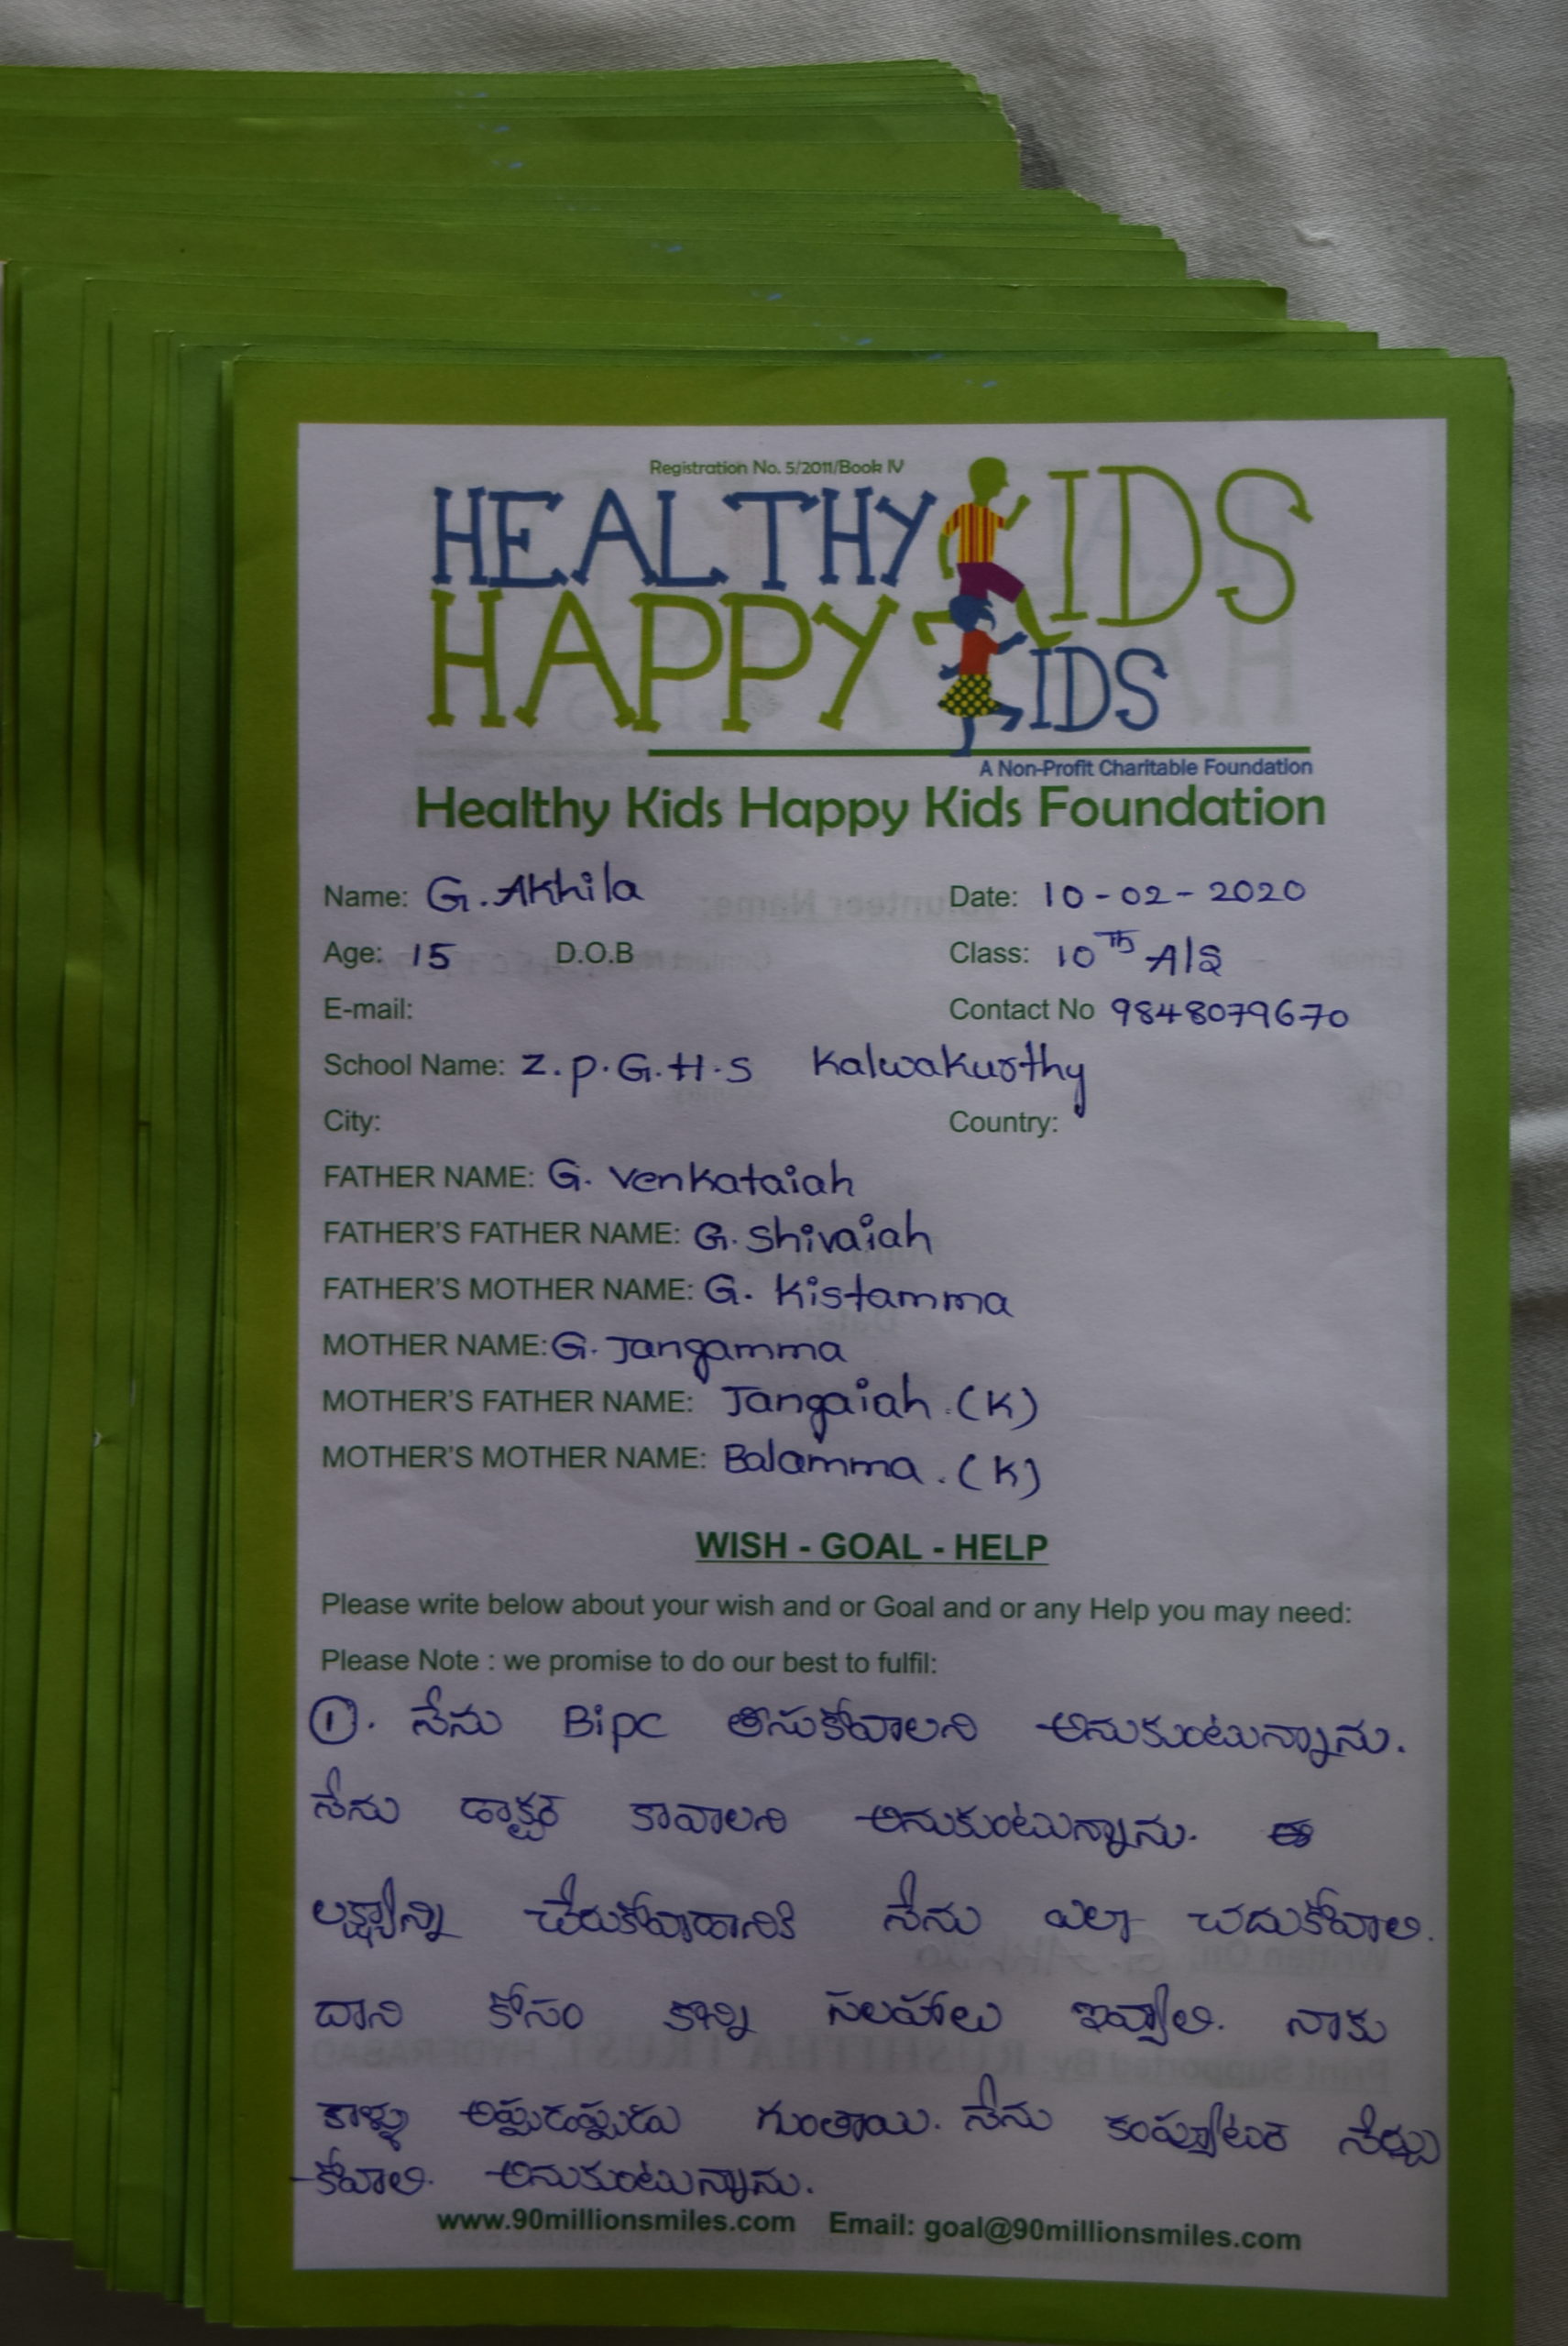 Registration No. 5/2011/Book IV
HEALTHY KIDS
HAPPY KIDS
A Non-Profit Charitable Foundation
Healthy Kids Happy Kids Foundation
Name: G. Akhila Date: 10-02-2020
Age: 15 D.O.B Class: 10Th A/S
E-mail: Contact No 9848079670
School Name: Z.P.G.H.S Kalwakurthy
City: Country:
FATHER NAME: G. Venkataiah
FATHER'S FATHER NAME: G. Shivaiah
FATHER'S MOTHER NAME: G. Kistamma
MOTHER NAME: G. Jangamma
MOTHER'S FATHER NAME: Jangaiah. (K)
MOTHER'S MOTHER NAME: Balamma. (K)
WISH - GOAL - HELP
Please write below about your wish and or Goal and or any Help you may need:
Please Note : we promise to do our best to fulfil:
①. నేను Bipc తీసుకోవాలని అనుకుంటున్నాను.
నేను డాక్టర్ కావాలని అనుకుంటున్నాను. ఈ
లక్ష్యాన్ని చేరుకోవడానికి నేను ఎలా చదుకోవాలి.
దాని కోసం కొన్ని సలహాలు ఇవ్వాలి. నాకు
కాళ్ళు అప్పుడప్పుడు గుంతాయి. నేను కంప్యూటర్ నేర్చు
-కోవాలి. అనుకుంటున్నాను.
www.90millionsmiles.com Email: goal@90millionsmiles.com